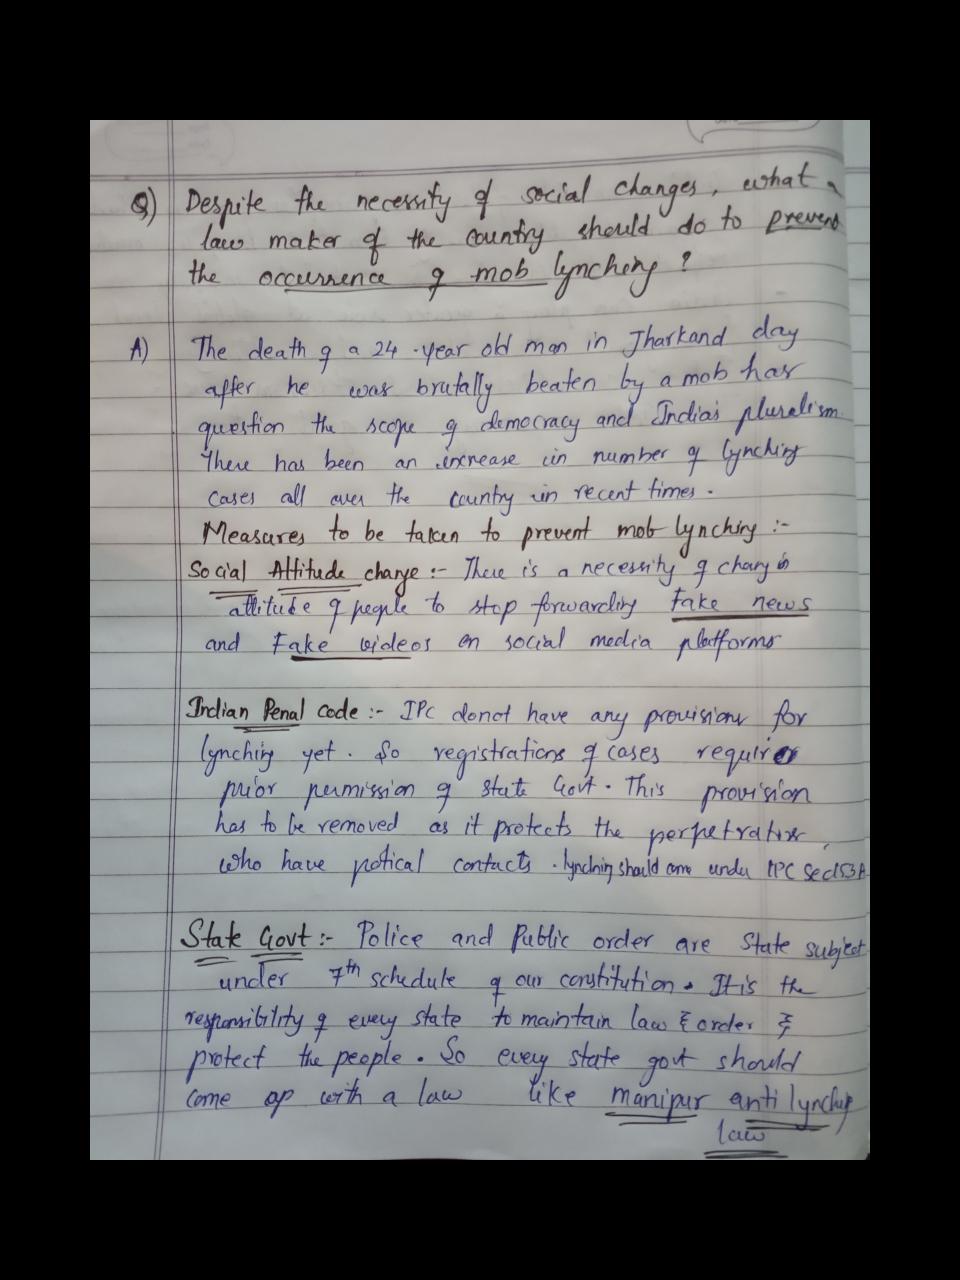 Q) Despite the necessity of social changes, what a
law maker of the country should do to prevent
the occurrence of mob lynching ?
A) The death of a 24 -year old man in Jharkand day
after he was brutally beaten by a mob has
question the scope of democracy and India's pluralism.
There has been an increase in number of lynching
cases all over the country in recent times.
Measures to be taken to prevent mob lynching :-
Social Attitude change :- There is a necessity of change in
attitude of people to stop forwarding fake news
and fake videos on social media platforms
Indian Penal Code :- IPC donot have any provisions for
lynching yet. So registrations of cases requires
prior permission of state Govt. This provision
has to be removed as it protects the perpetrators,
who have potical contacts. lynching should come under IPC Sec153A
State Govt :- Police and Public order are State subject
under 7th schedule of our constitution. It is the
responsibility of every state to maintain law & order &
protect the people. So every state govt should
come up with a law like manipur anti lynching
law